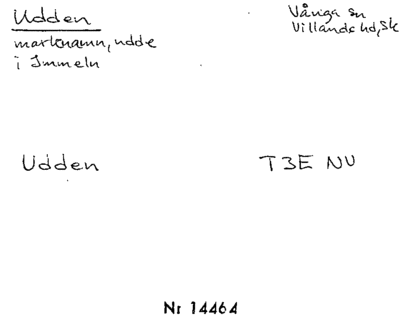 Udden
marknamn, udde
i Immeln
Vånga sn
Villands hd, Sk
Udden
T3E NV
Nr 14464